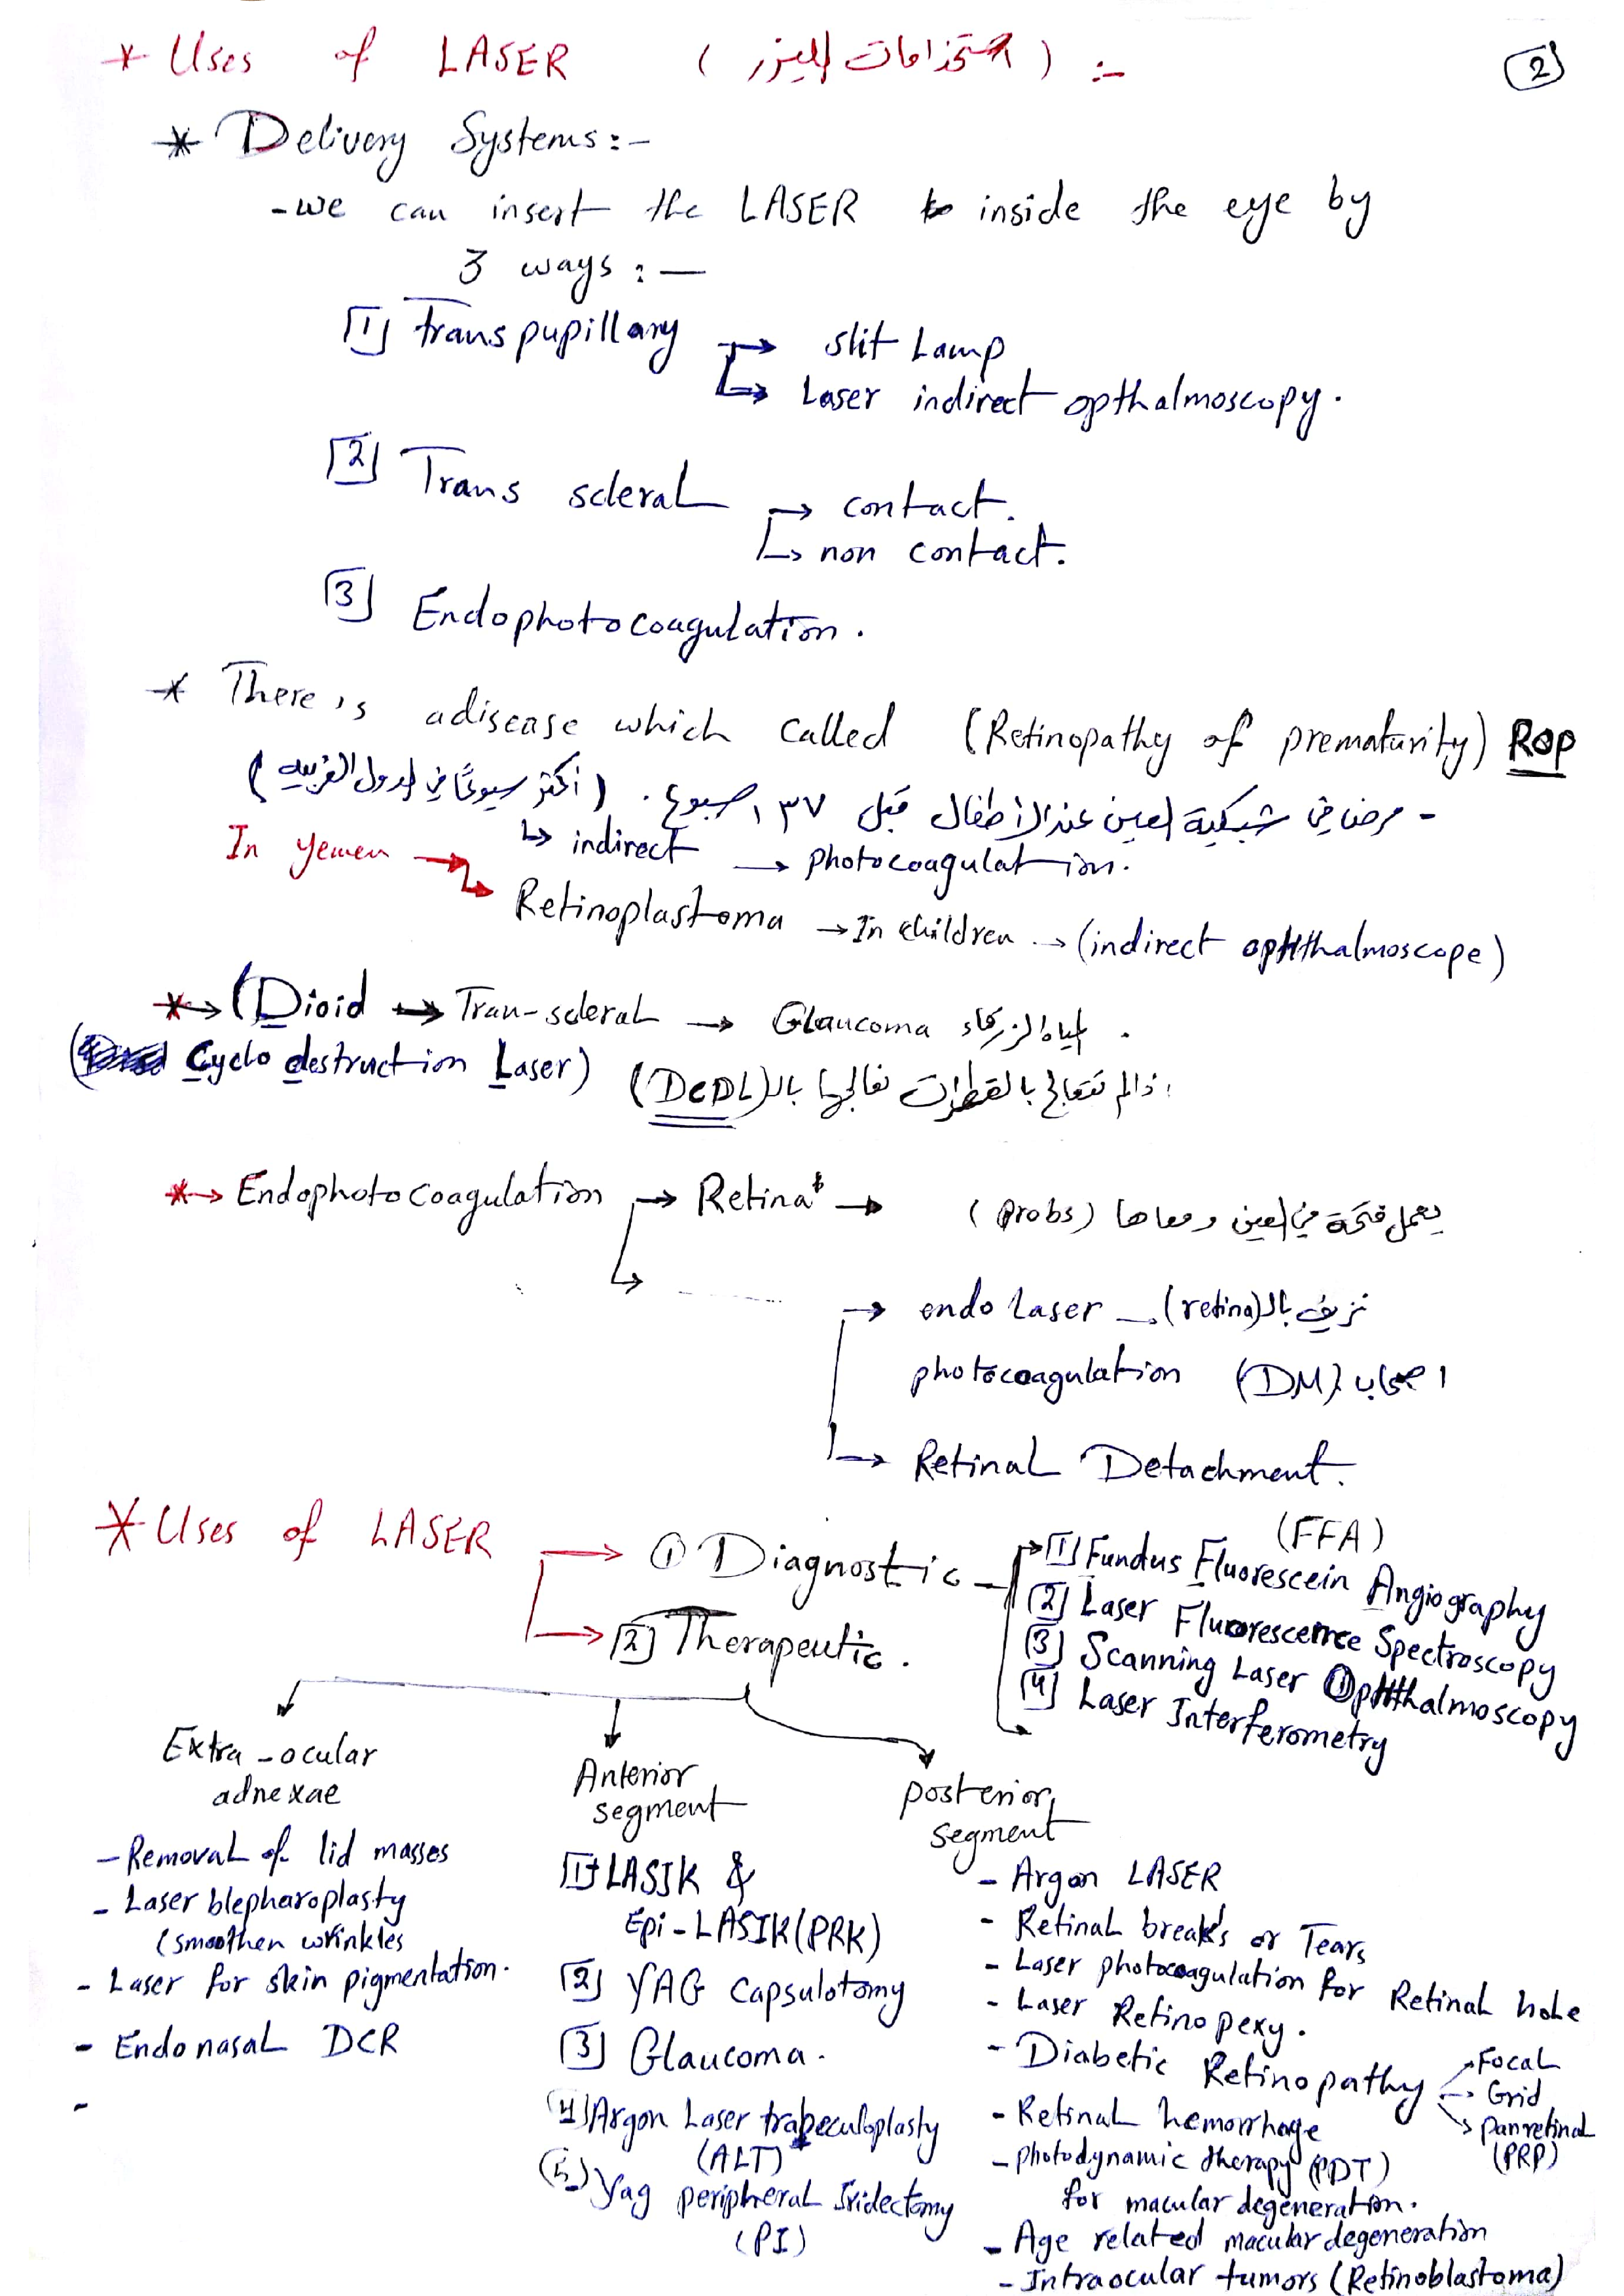 * Uses of LASER (استخدامات الليزر) :-
2
* Delivery Systems :-
- we can insert the LASER to inside the eye by
3 ways : —
1 transpupillary → slit Lamp
→ Laser indirect opthalmoscopy.
2 Trans scleral → contact.
→ non contact.
3 Endophotocoagulation.
* There is adisease which called (Retinopathy of prematurity) ROP
- مرض في شبكية العين عند الأطفال قبل ٣٧ اسبوع. (أكثر شيوعًا في الدول الغربيه)
↳ indirect → photocoagulation.
In yemen → Retinoplastoma → In children → (indirect ophthalmoscope)
* → (Dioid → Tran-scleral → Glaucoma المياه الزرقاء.
Cyclo destruction Laser) (DCDL) إذا لم تتعالج بالقطرات نعالجها بالـ
* → Endophotocoagulation → Retina → يعمل فتحة في العين ومعاها (probs)
→ endo laser → نزيف بالـ(retina)
photocoagulation (DM) اصحاب
→ Retinal Detachment.
* Uses of LASER → ① Diagnostic
→ 2 Therapeutic.
(FFA)
1 Fundus Fluorescein Angiography
2 Laser Fluorescence Spectroscopy
3 Scanning Laser Ophthalmoscopy
4 Laser Interferometry
Extra-ocular
adnexae
- Removal of lid masses
- Laser blepharoplasty
(smoothen wrinkles
- Laser for skin pigmentation.
- Endonasal DCR
-
Anterior
segment
1 LASIK &
Epi-LASIK (PRK)
2 YAG Capsulotomy
3 Glaucoma.
(4) Argon Laser trabeculoplasty
(ALT)
(5) Yag peripheral Iridectomy
(PI)
posterior
segment
- Argon LASER
- Retinal breaks or Tears
- Laser photocoagulation for Retinal hole
- Laser Retinopexy.
- Diabetic Retinopathy → Focal
→ Grid
→ panretinal
(PRP)
- Retinal hemorrhage
- photodynamic therapy (PDT)
for macular degeneration.
- Age related macular degeneration
- Intraocular tumors (Retinoblastoma)